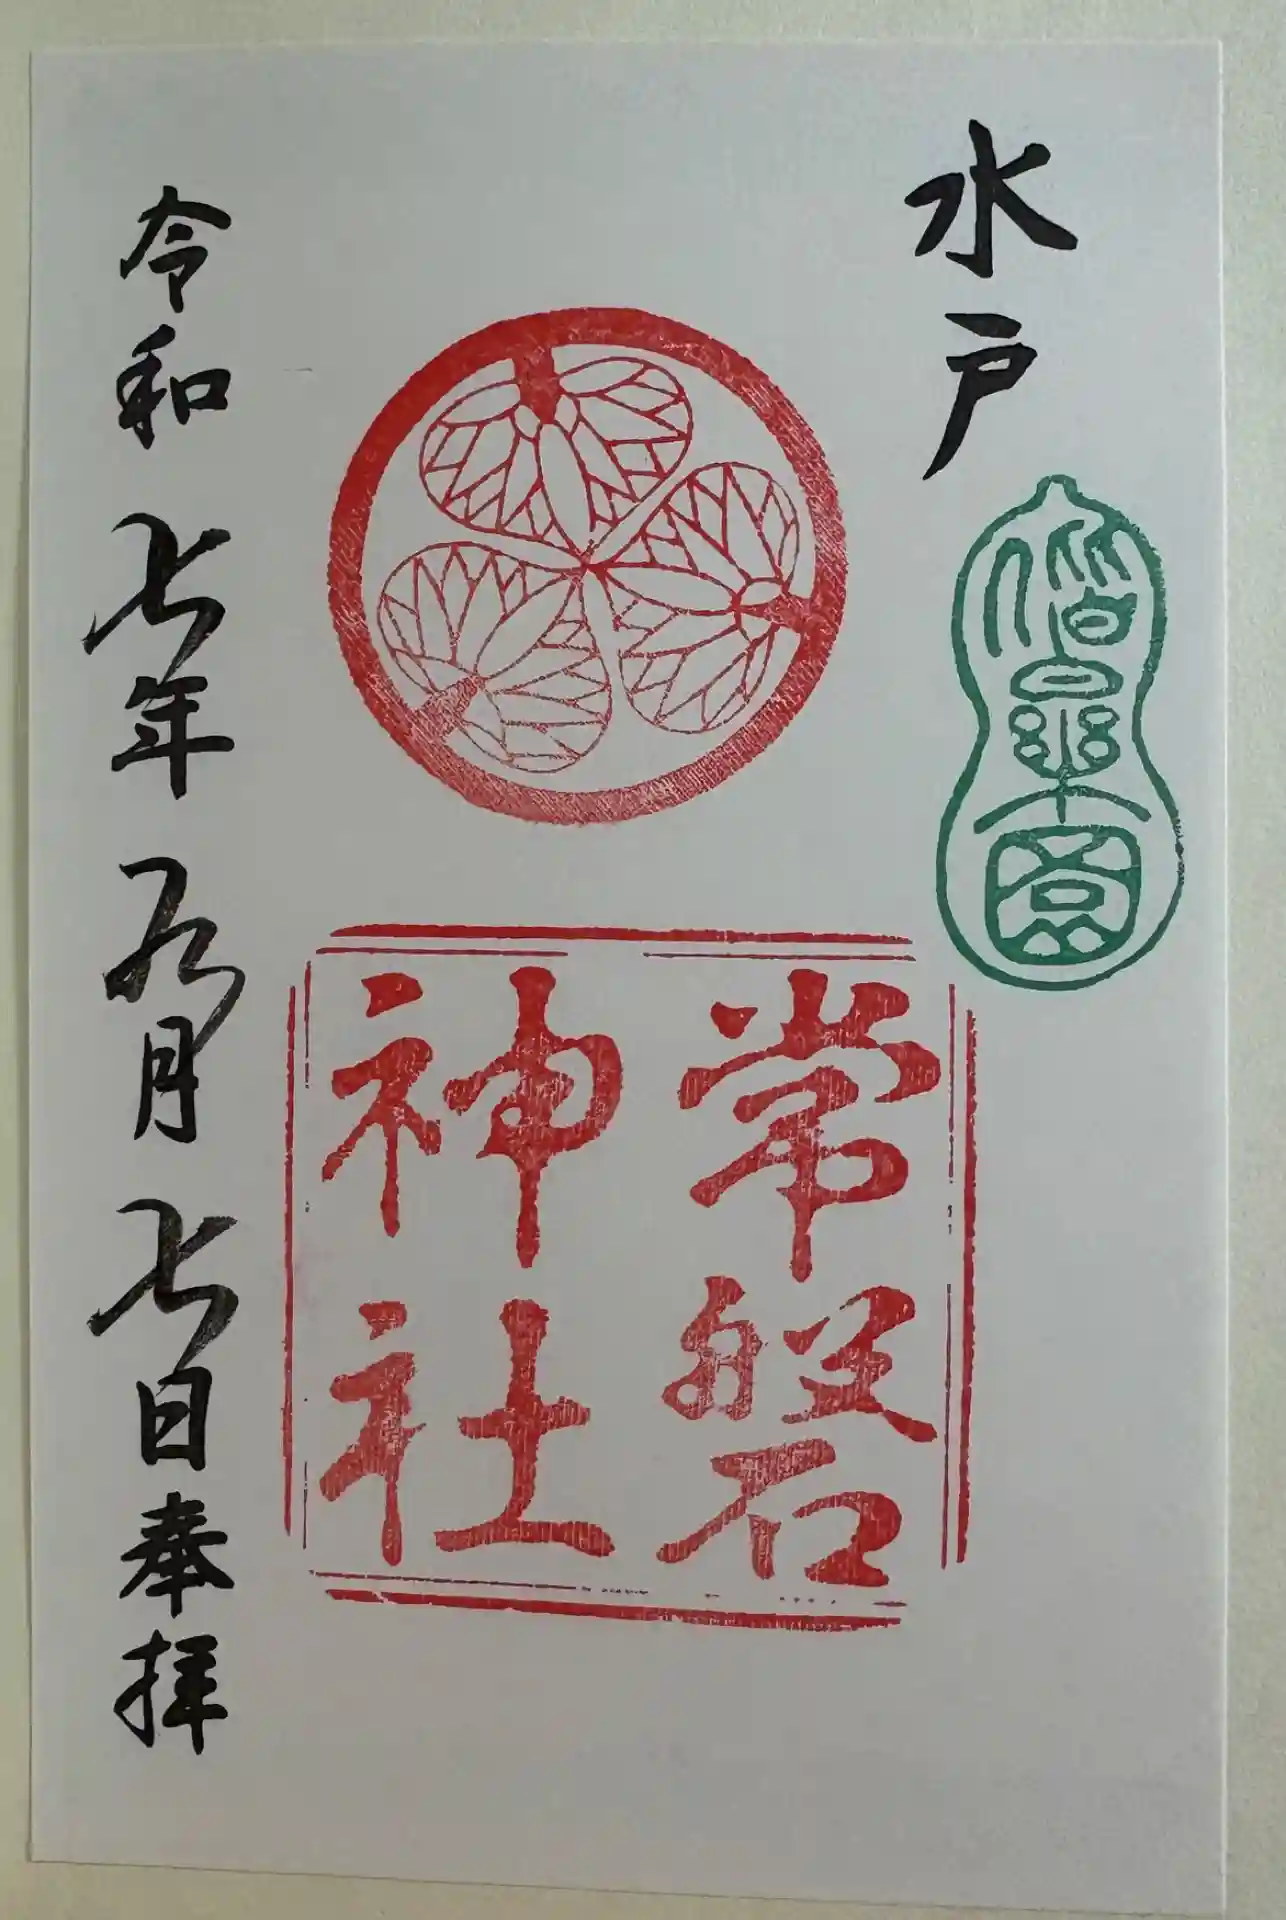 水戸
偕楽園
常磐
神社
令和七年九月七日奉拝